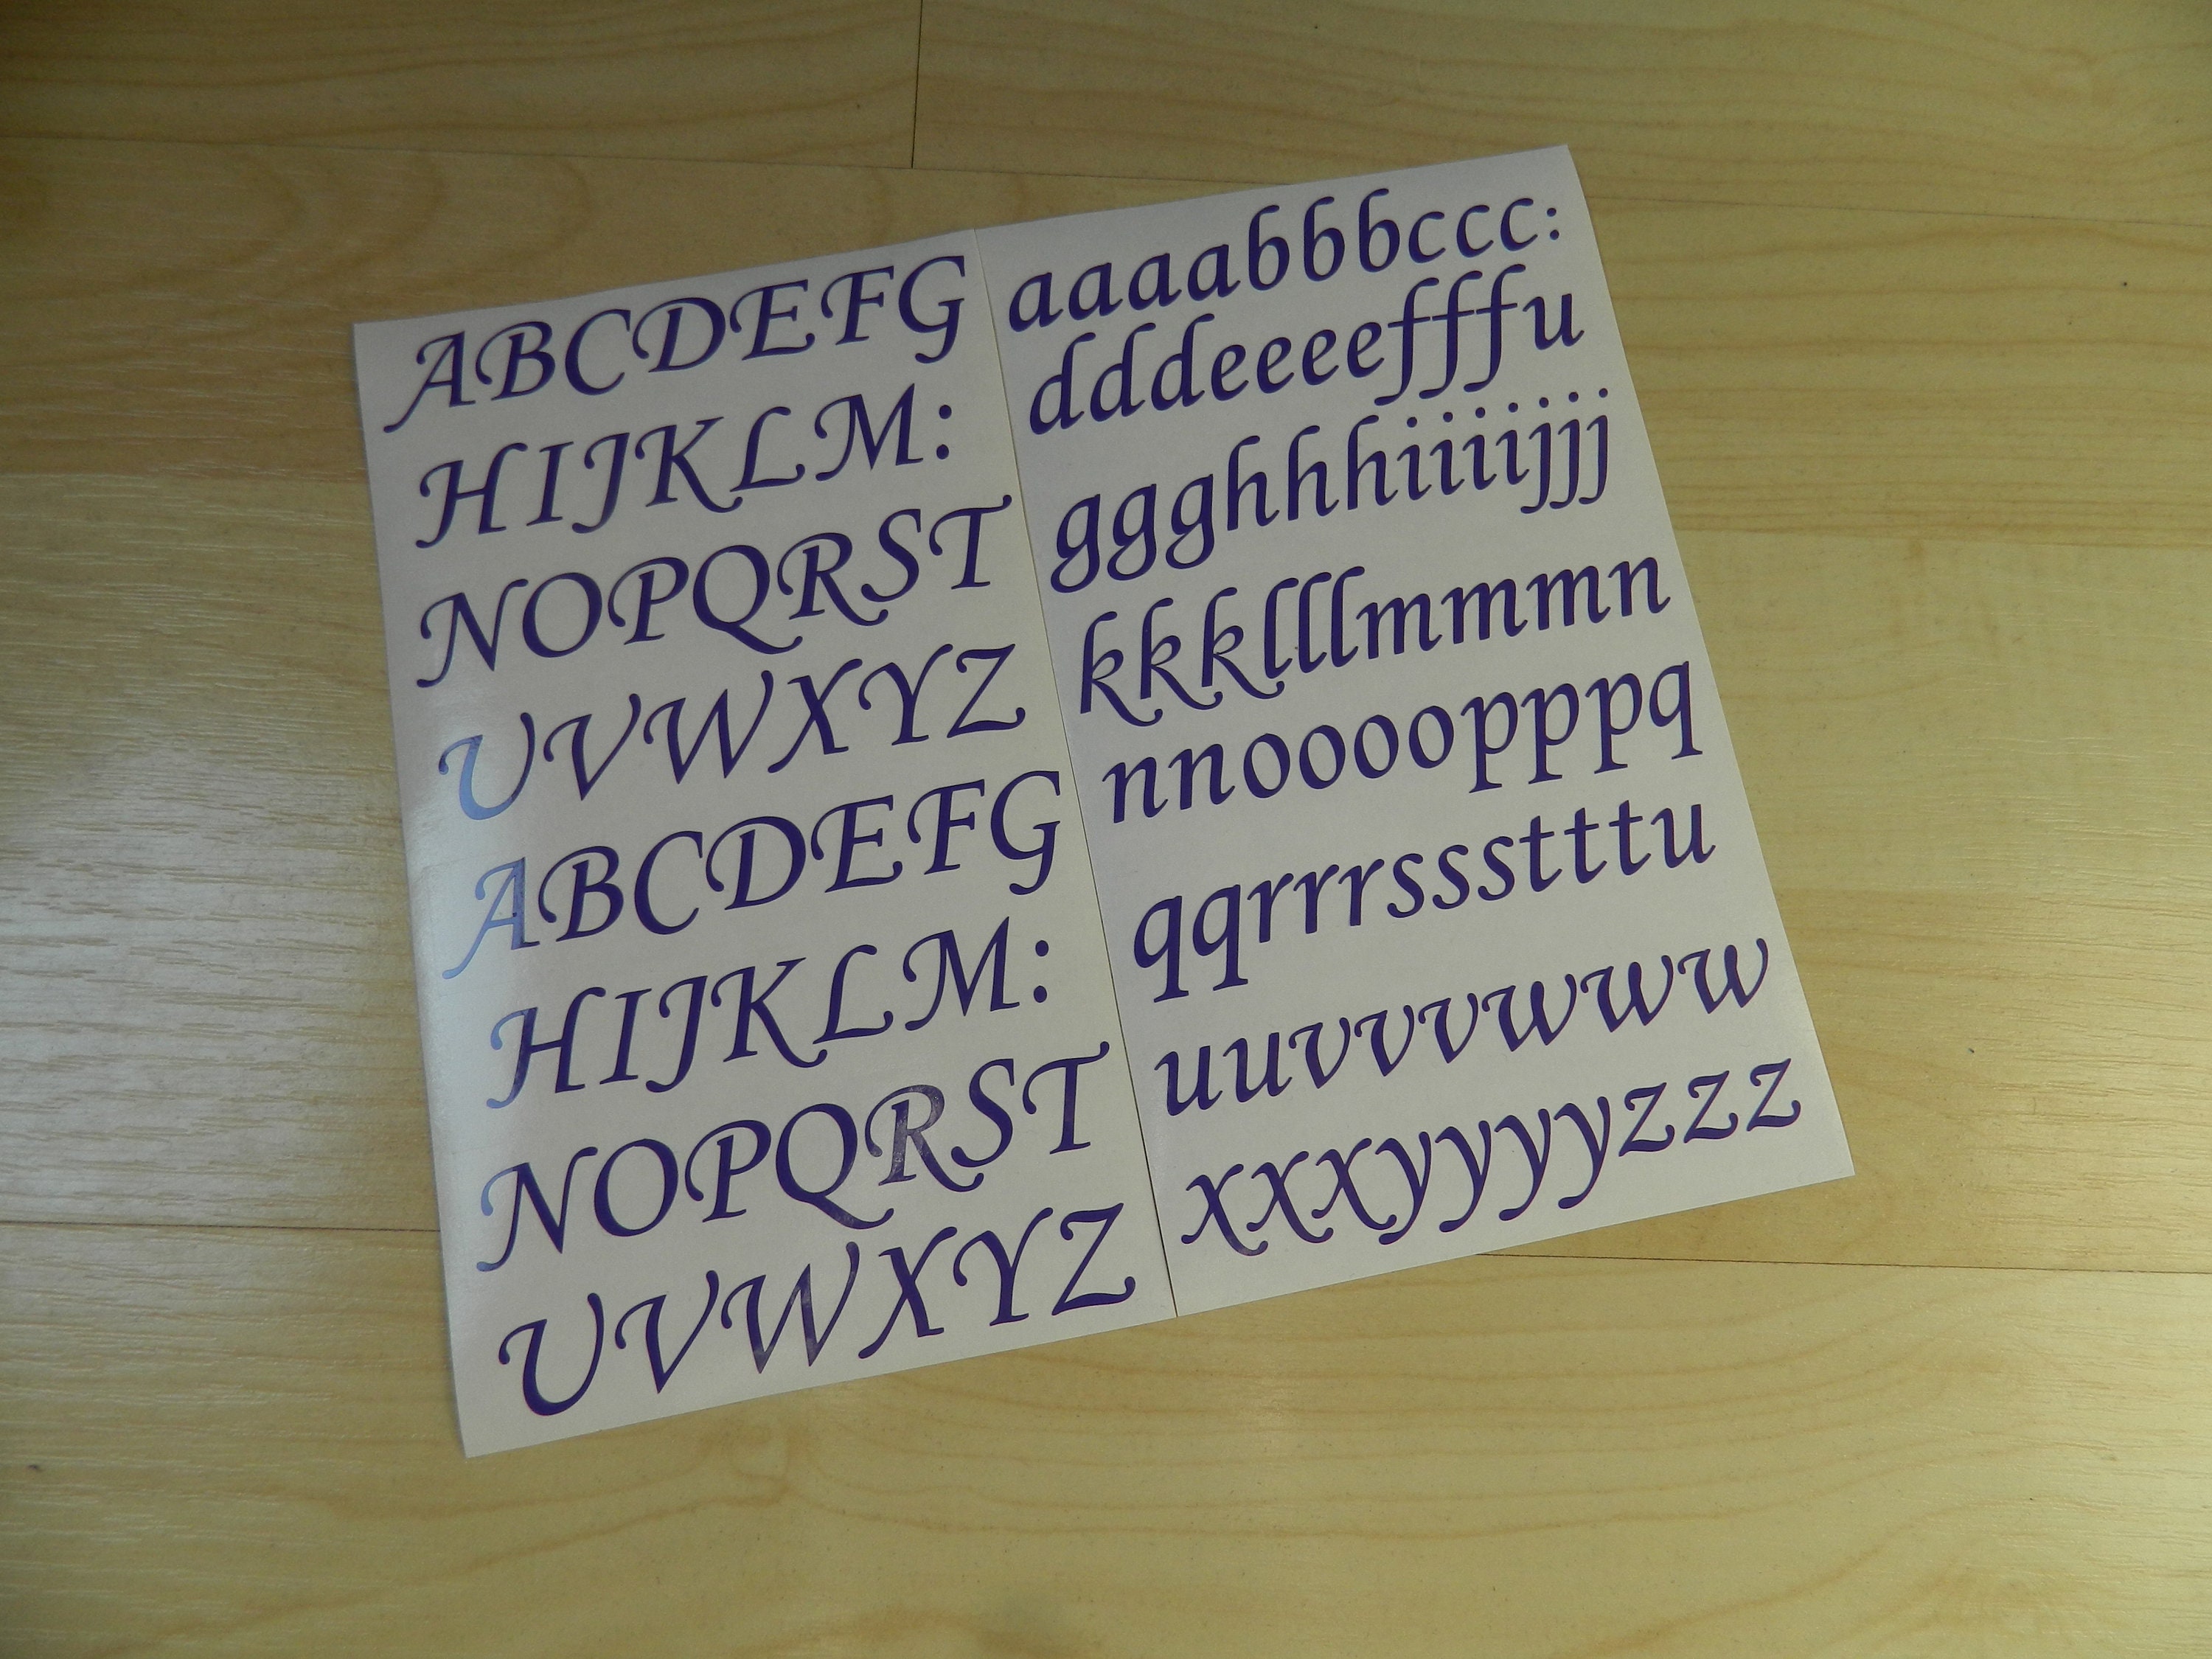 ABCDEFG
HIJKLM:
NOPQRST
UVWXYZ
ABCDEFG
HIJKLM:
NOPQRST
UVWXYZ
aaaabbbccc:
dddeeeefffu
ggghhhiiiijjj
kkklllmmmn
nnoooopppq
qqrrrssstttu
uuvvvwww
xxxyyyyzzz